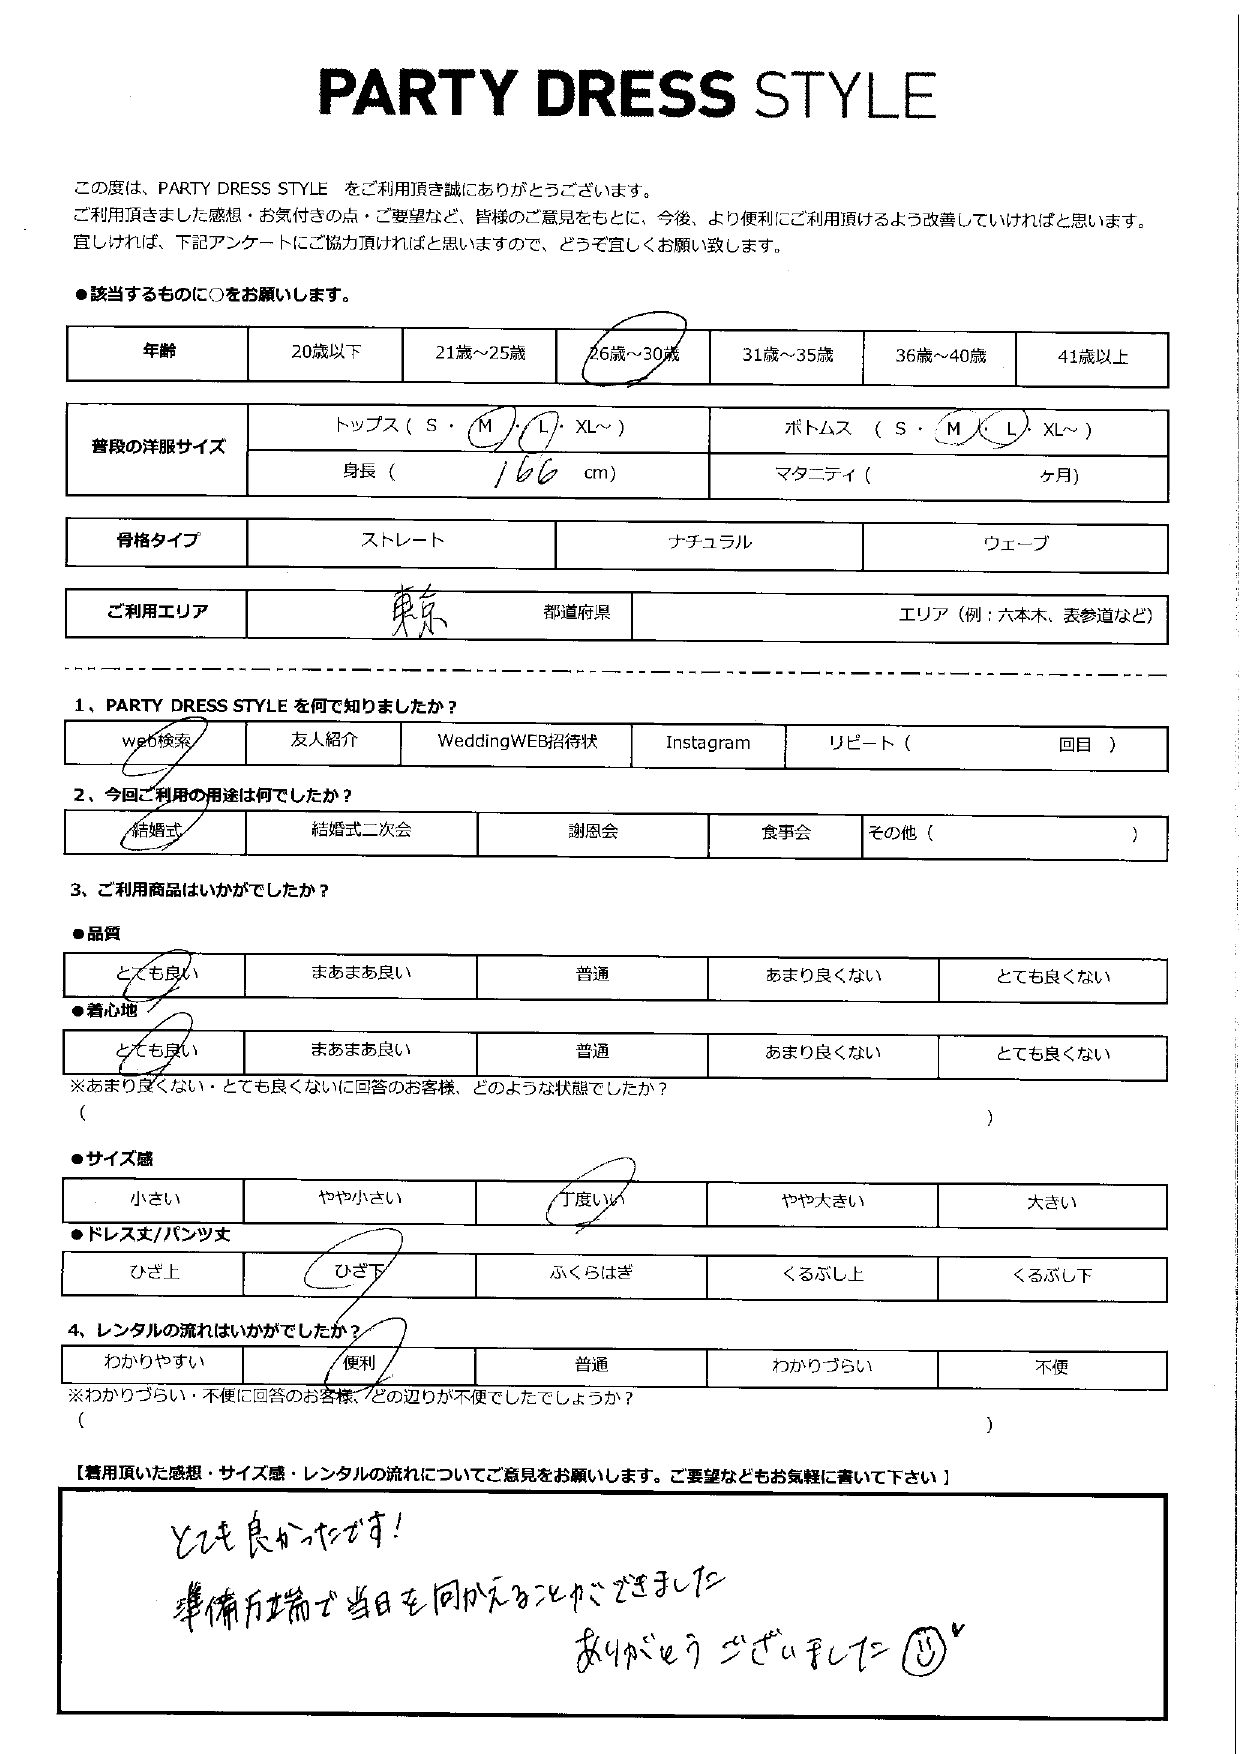 PARTY DRESS STYLE
この度は、PARTY DRESS STYLE をご利用頂き誠にありがとうございます。
ご利用頂きました感想・お気付きの点・ご要望など、皆様のご意見をもとに、今後、より便利にご利用頂けるよう改善していければと思います。
宜しければ、下記アンケートにご協力頂ければと思いますので、どうぞ宜しくお願い致します。
●該当するものに○をお願いします。
年齢 20歳以下 21歳～25歳 26歳～30歳 31歳～35歳 36歳～40歳 41歳以上
普段の洋服サイズ トップス ( S ・ M ・ L ・ XL～ ) ボトムス ( S ・ M ・ L ・ XL～ )
身長 ( 166 cm) マタニティ ( ヶ月)
骨格タイプ ストレート ナチュラル ウェーブ
ご利用エリア 東京 都道府県 エリア（例：六本木、表参道など）
1、PARTY DRESS STYLE を何で知りましたか？
web検索 友人紹介 WeddingWEB招待状 Instagram リピート ( 回目 )
2、今回ご利用の用途は何でしたか？
結婚式 結婚式二次会 謝恩会 食事会 その他 ( )
3、ご利用商品はいかがでしたか？
●品質
とても良い まあまあ良い 普通 あまり良くない とても良くない
●着心地
とても良い まあまあ良い 普通 あまり良くない とても良くない
※あまり良くない・とても良くないに回答のお客様、どのような状態でしたか？
( )
●サイズ感
小さい やや小さい 丁度いい やや大きい 大きい
●ドレス丈/パンツ丈
ひざ上 ひざ下 ふくらはぎ くるぶし上 くるぶし下
4、レンタルの流れはいかがでしたか？
わかりやすい 便利 普通 わかりづらい 不便
※わかりづらい・不便に回答のお客様、どの辺りが不便でしたでしょうか？
( )
【着用頂いた感想・サイズ感・レンタルの流れについてご意見をお願いします。ご要望などもお気軽に書いて下さい 】
とても良かったです!
準備万端で当日を向かえることができました
ありがとうございました